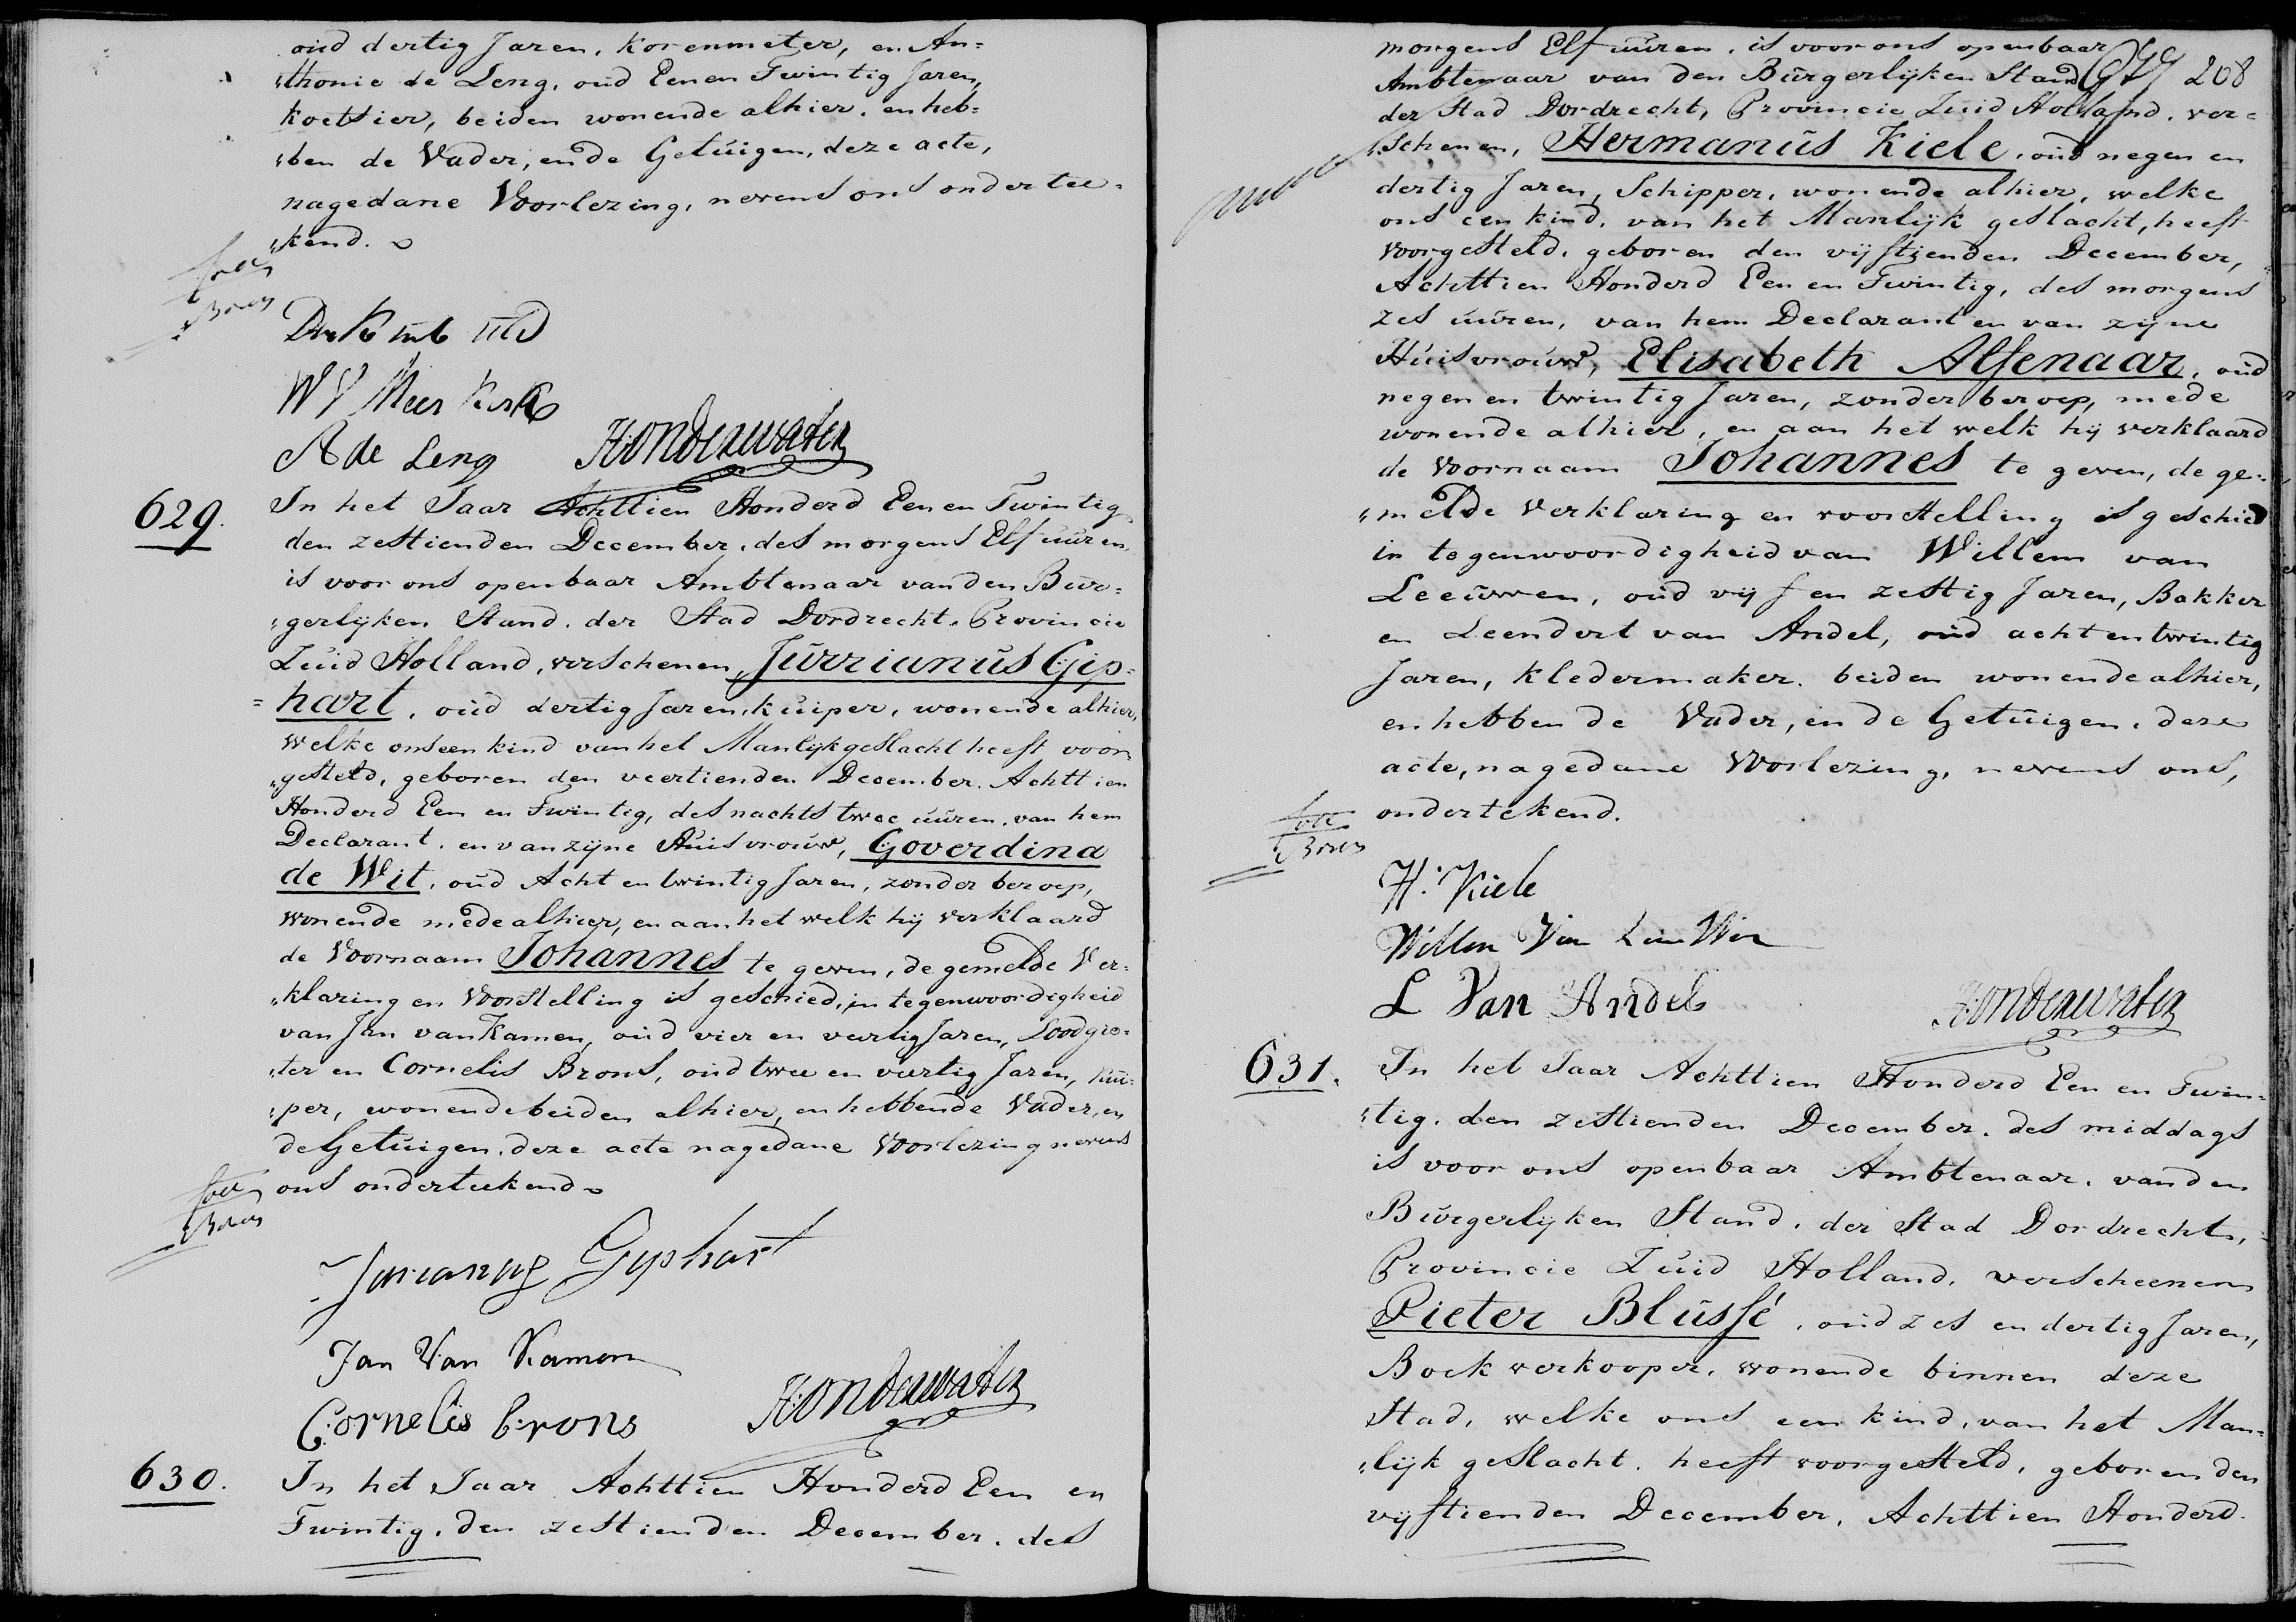 oud dertig Jaren, korenmeter, en An=
"thonie de Leng, oud Eenen Twintig Jaren,
koetsier, beiden wonende alhier, en heb=
"ben de Vader, en de Getuigen, deze acte,
nagedane Voorlezing, nevens ons ondertee=
"kend.
W V Meer Kerk
A de Leng Hondenwater
629. In het Jaar Achttien Honderd Een en Twintig
den zestienden December, des morgens Elf uuren,
is voor ons openbaar Ambtenaar van den Bur=
"gerlyken Stand, der Stad Dordrecht, Provincie
Zuid Holland, verschenen, Jurrianus Gip=
=hart, oud dertig Jaren, kuiper, wonende alhier,
welke ons een kind van het Manlyk geslacht heeft voor
"gesteld, geboren den veertienden December, Achttien
Honderd Een en Twintig, des nachts twee uuren, van hem
Declarant, en van zyne Huisvrouw, Goverdina
de Wit, oud Acht en twintig Jaren, zonder beroep,
wonende mede alhier, en aan het welk hy verklaard
de Voornaam Johannes te geven, de gemelde Ver=
"klaring en Voorstelling is geschied, in tegenwoordigheid
van Jan van Kamen, oud vier en veertig Jaren, Loodgie=
"ter en Cornelis Brons, oud twee en veertig Jaren, kui=
"per, wonende beiden alhier, en hebben de Vader, en
de Getuigen, deze acte nagedane Voorlezing nevens
ons onderteekend
Jurianus Gyphart
Jan Van Kamen
Cornelis Brons Hondenwater
630. In het Jaar Achttien Honderd Een en
Twintig, den zestienden December, des
morgens Elf uuren, is voor ons openbaar
Ambtenaar van den Burgerlyken Stand 208
der Stad Dordrecht, Provincie Zuid Holland, ver=
"schenen, Hermanus Kiele, oud negen en
dertig Jaren, Schipper, wonende alhier, welke
ons een kind, van het Manlyk geslacht, heeft
voorgesteld, geboren den vyftienden December,
Achttien Honderd Een en Twintig, des morgens
zes uuren, van hem Declarant en van zyne
Huisvrouw, Elisabeth Alsenaar, oud
negen en twintig Jaren, zonder beroep, mede
wonende alhier, en aan het welk hy verklaard
de Voornaam Johannes te geven, de ge=
"melde Verklaring en voorstelling is geschied
in tegenwoordigheid van Willem van
Leeuwen, oud vyf en zestig Jaren, Bakker
en Leendert van Andel, oud acht en twintig
Jaren, kledermaker, beiden wonende alhier,
en hebben de Vader, en de Getuigen, deze
acte, nagedane Voorlezing, nevens ons,
ondertekend.
H: Kiele
L Van Andel Hondenwater
631. In het Jaar Achttien Honderd Een en Twin=
"tig, den zestienden December, des middags
is voor ons openbaar Ambtenaar, van den
Burgerlyken Stand, der Stad Dordrecht,
Provincie Zuid Holland, verscheenen
Pieter Blussé, oud zes en dertig Jaren,
Boekverkooper, wonende binnen deze
Stad, welke ons een kind, van het Man=
"lyk geslacht, heeft voorgesteld, geboren den
vyftienden December, Achttien Honderd